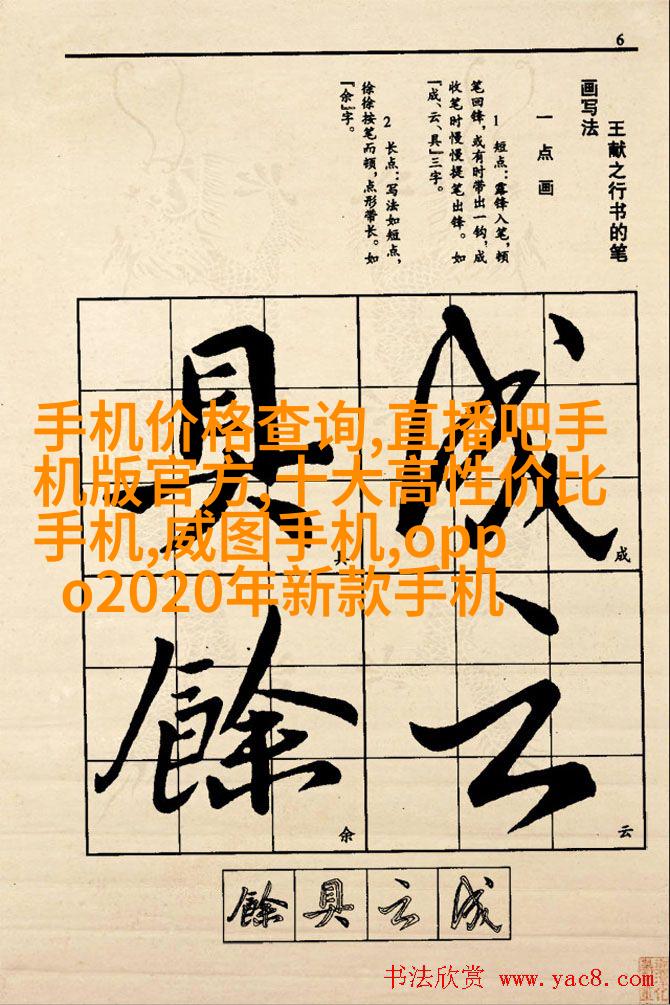 6
王献之行书的笔
画写法
一 点 画
1 短点：露锋入笔，顿
笔回锋，或有时带出一钩，成
收笔时慢慢提笔出锋。如
“成、云、具”三字。
2 长点：写法如短点，
徐徐按笔而顿，点形带长。如
“余”字。
成
云
具
餘
成
云
具
余
手机价格查询,直播吧手
机版官方,十大高性价比
手机,威图手机,opp
o2020年新款手机
餘具云成
书法欣赏 www.yac8.com